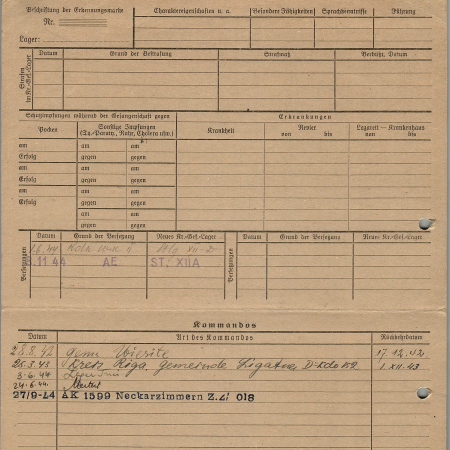 Beschriftung der Erkennungsmarke
Nr.
Lager:
Charaktereigenschaften u. a.
Besondere Fähigkeiten
Sprachkenntnisse
Führung
Strafen im Kr.-Gef.-Lager
Datum
Grund der Bestrafung
Strafmaß
Verbüßt, Datum
Schutzimpfungen während der Gefangenschaft gegen
Erkrankungen
Pocken
Sonstige Impfungen
(Ty.-Paraty., Ruhr, Cholera usw.)
Krankheit
Revier
von bis
Lazarett — Krankenhaus
von bis
am am am
Erfolg gegen gegen
am am am
Erfolg gegen gegen
am am am
Erfolg gegen gegen
am am
gegen gegen
am am
gegen gegen
Versetzungen
Datum
Grund der Versetzung
Neues Kr.-Gef.-Lager
11 44 AE. ST: XIIA
Versetzungen
Datum
Grund der Versetzung
Neues Kr.-Gef.-Lager
Kommandos
Datum
Art des Kommandos
Rückkehrdatum
28.8.42 gem 17.12.42
25.3.43 Kreis Riga, gemeinde Ligatne 1.XII.43
3.6.44
24.6.44.
27/9-44 AK 1599 Neckarzimmern Z. 018